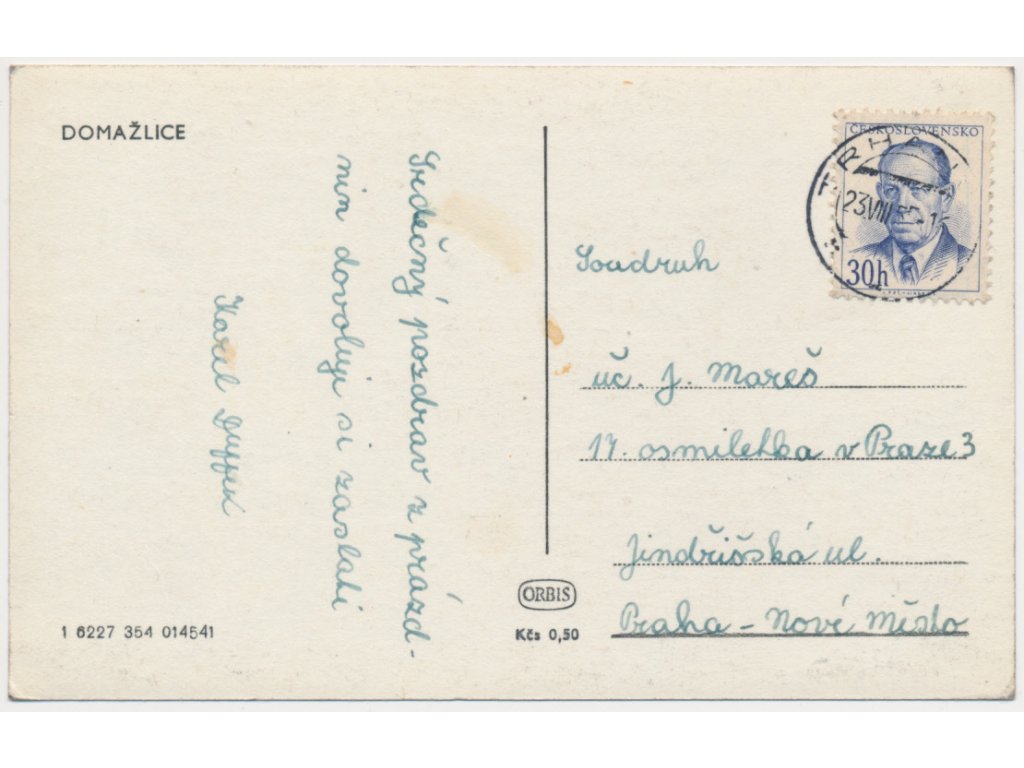 DOMAŽLICE
Srdečný pozdrav z prázd-
nin dovoluji si zaslati
Karel
ČESKOSLOVENSKO
30h
23.VIII.
Soudruh
uč. J. Mareš
17. osmiletka v Praze 3
Jindřišská ul.
Praha - Nové Město
ORBIS
Kčs 0,50
1 6227 354 014541